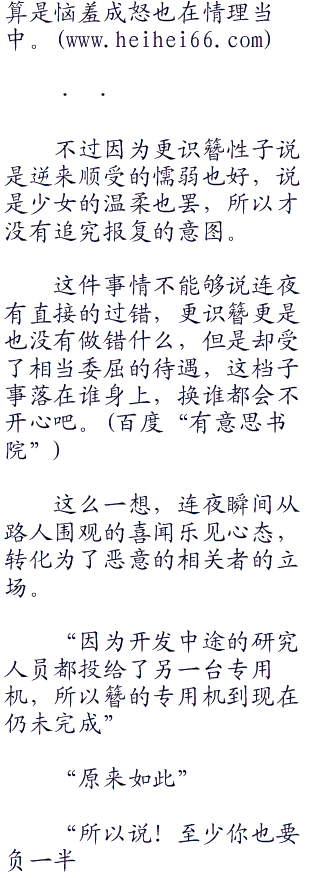 算是恼羞成怒也在情理当
中。(www.heihei66.com)
．．
不过因为更识簪性子说
是逆来顺受的懦弱也好，说
是少女的温柔也罢，所以才
没有追究报复的意图。
这件事情不能够说连夜
有直接的过错，更识簪更是
也没有做错什么，但是却受
了相当委屈的待遇，这档子
事落在谁身上，换谁都会不
开心吧。(百度“有意思书
院”)
这么一想，连夜瞬间从
路人围观的喜闻乐见心态，
转化为了恶意的相关者的立
场。
“因为开发中途的研究
人员都投给了另一台专用
机，所以簪的专用机到现在
仍未完成”
“原来如此”
“所以说！至少你也要
负一半